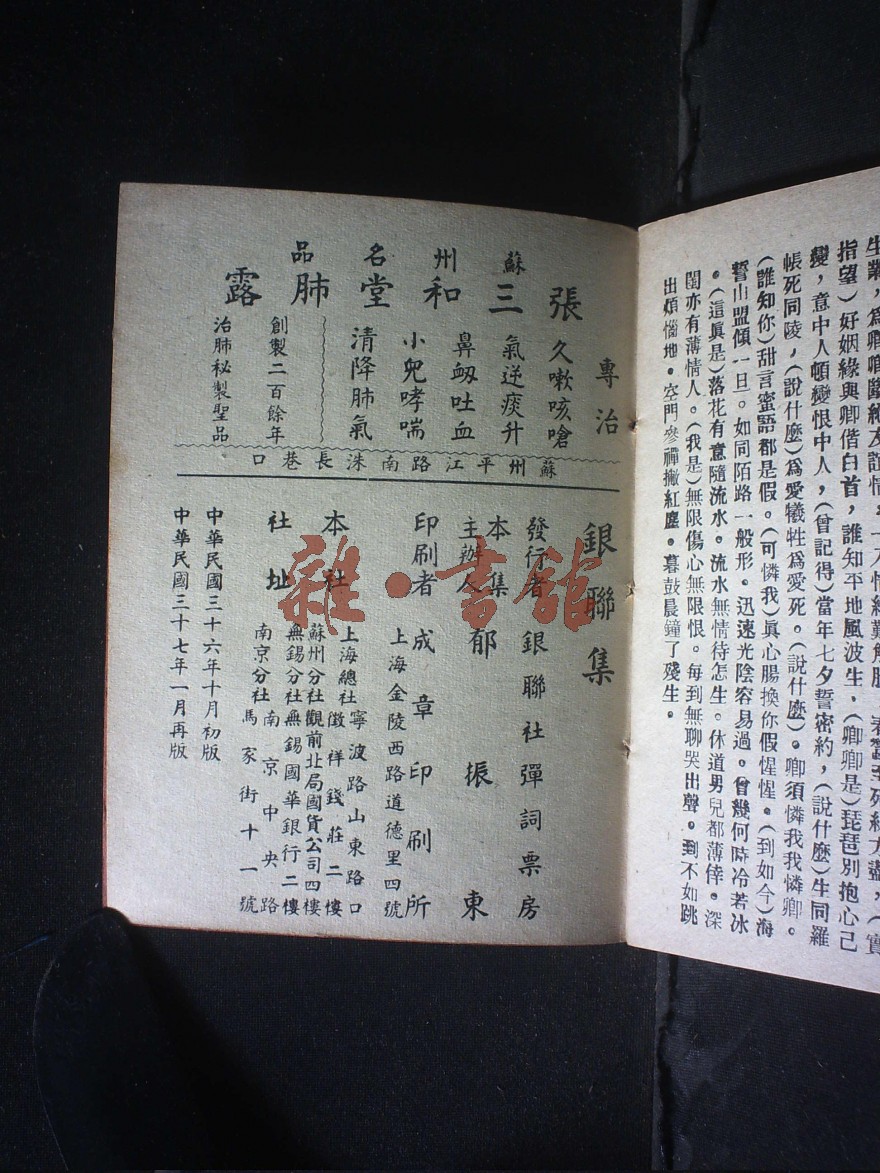 生業，為卿
指望）好姻緣與卿偕白首，誰知平地風波生．（卿卿是）琵琶別抱心已
變，意中人頓變恨中人，（曾記得）當年七夕誓密約，（說什麼）生同羅
帳死同陵，（說什麼）為愛犧牲為愛死。（說什麼）。卿須憐我我憐卿。
（誰知你）甜言蜜語都是假。（可憐我）眞心腸換你假惺惺。（到如今）海
誓山盟傾一旦。如同陌路一般形。迅速光陰容易過。曾幾何時冷若冰
。（這眞是）落花有意隨流水。流水無情待怎生。休道男兒都薄倖。深
閨亦有薄情人。（我是）無限傷心無限恨。每到無聊哭出聲。到不如跳
出煩惱地。空門參禪撇紅塵。暮鼓晨鐘了殘生。
蘇州名品
張三和堂肺露
專治
久嗽咳嗆
氣逆痰升
鼻衂吐血
小兒哮喘
清降肺氣
創製二百餘年
治肺秘製聖品
蘇州平江路南洙長巷口
銀聯集
發行者 銀聯社彈詞票房
本集主辦人 郁振東
印刷者 成章印刷所
上海金陵西路道德里四號
本社社址
上海總社寧波路山東路口
徵祥錢莊二樓
蘇州分社觀前北局國貨公司四樓
無錫分社無錫國華銀行二樓
南京分社南京中央路
馬家街十一號
中華民國三十六年十月初版
中華民國三十七年一月再版
雜·書館